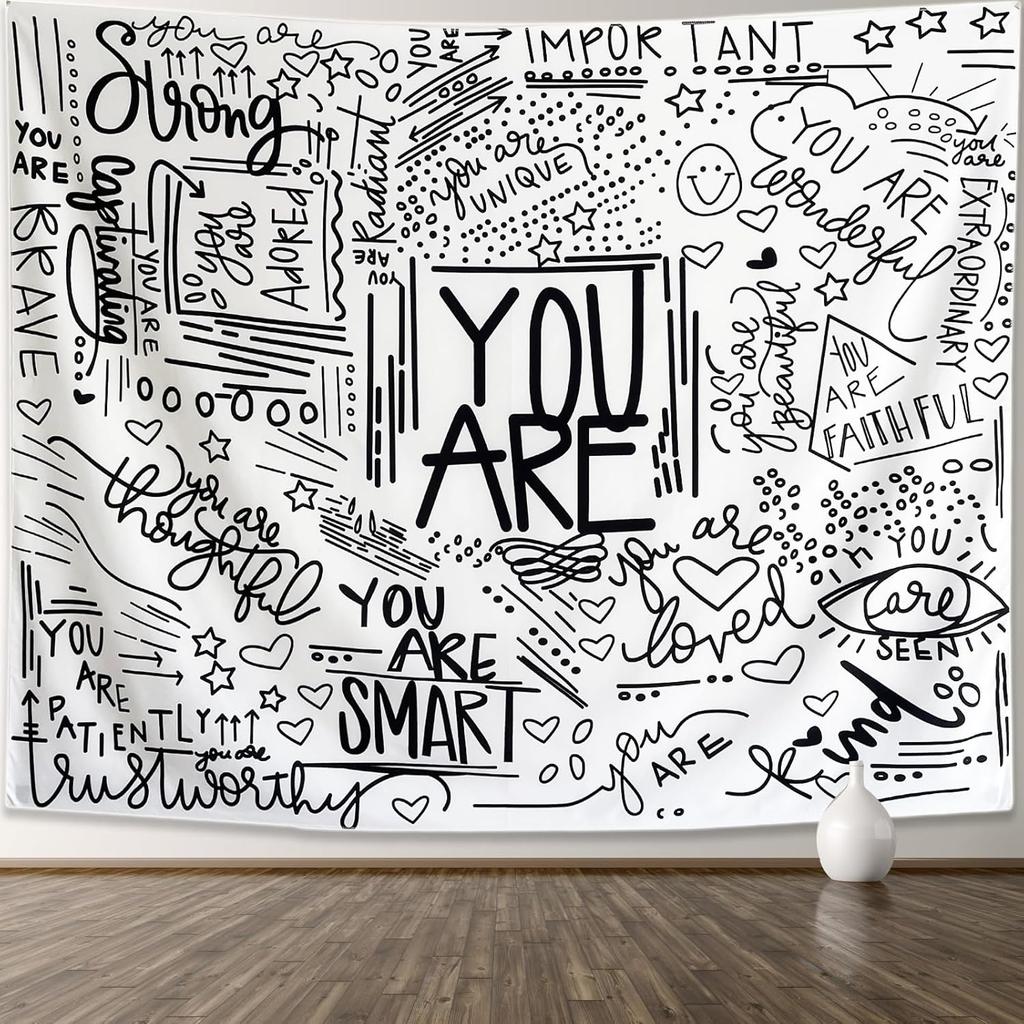 you are
Strong
YOU
ARE
IMPORTANT
YOU
ARE
BRAVE
Captivating
YOU ARE
you
are
ADORED
Radiant
YOU
ARE
you are
UNIQUE
YOU ARE
Wonderful
you
are
EXTRAORDINARY
YOU
ARE
you are
Beautiful
YOU
ARE
FAITHFUL
you are
thoughtful
you are
loved
YOU
are
SEEN
YOU
ARE
SMART
YOU
ARE
PATIENTLY
you are
trustworthy
you
ARE
kind